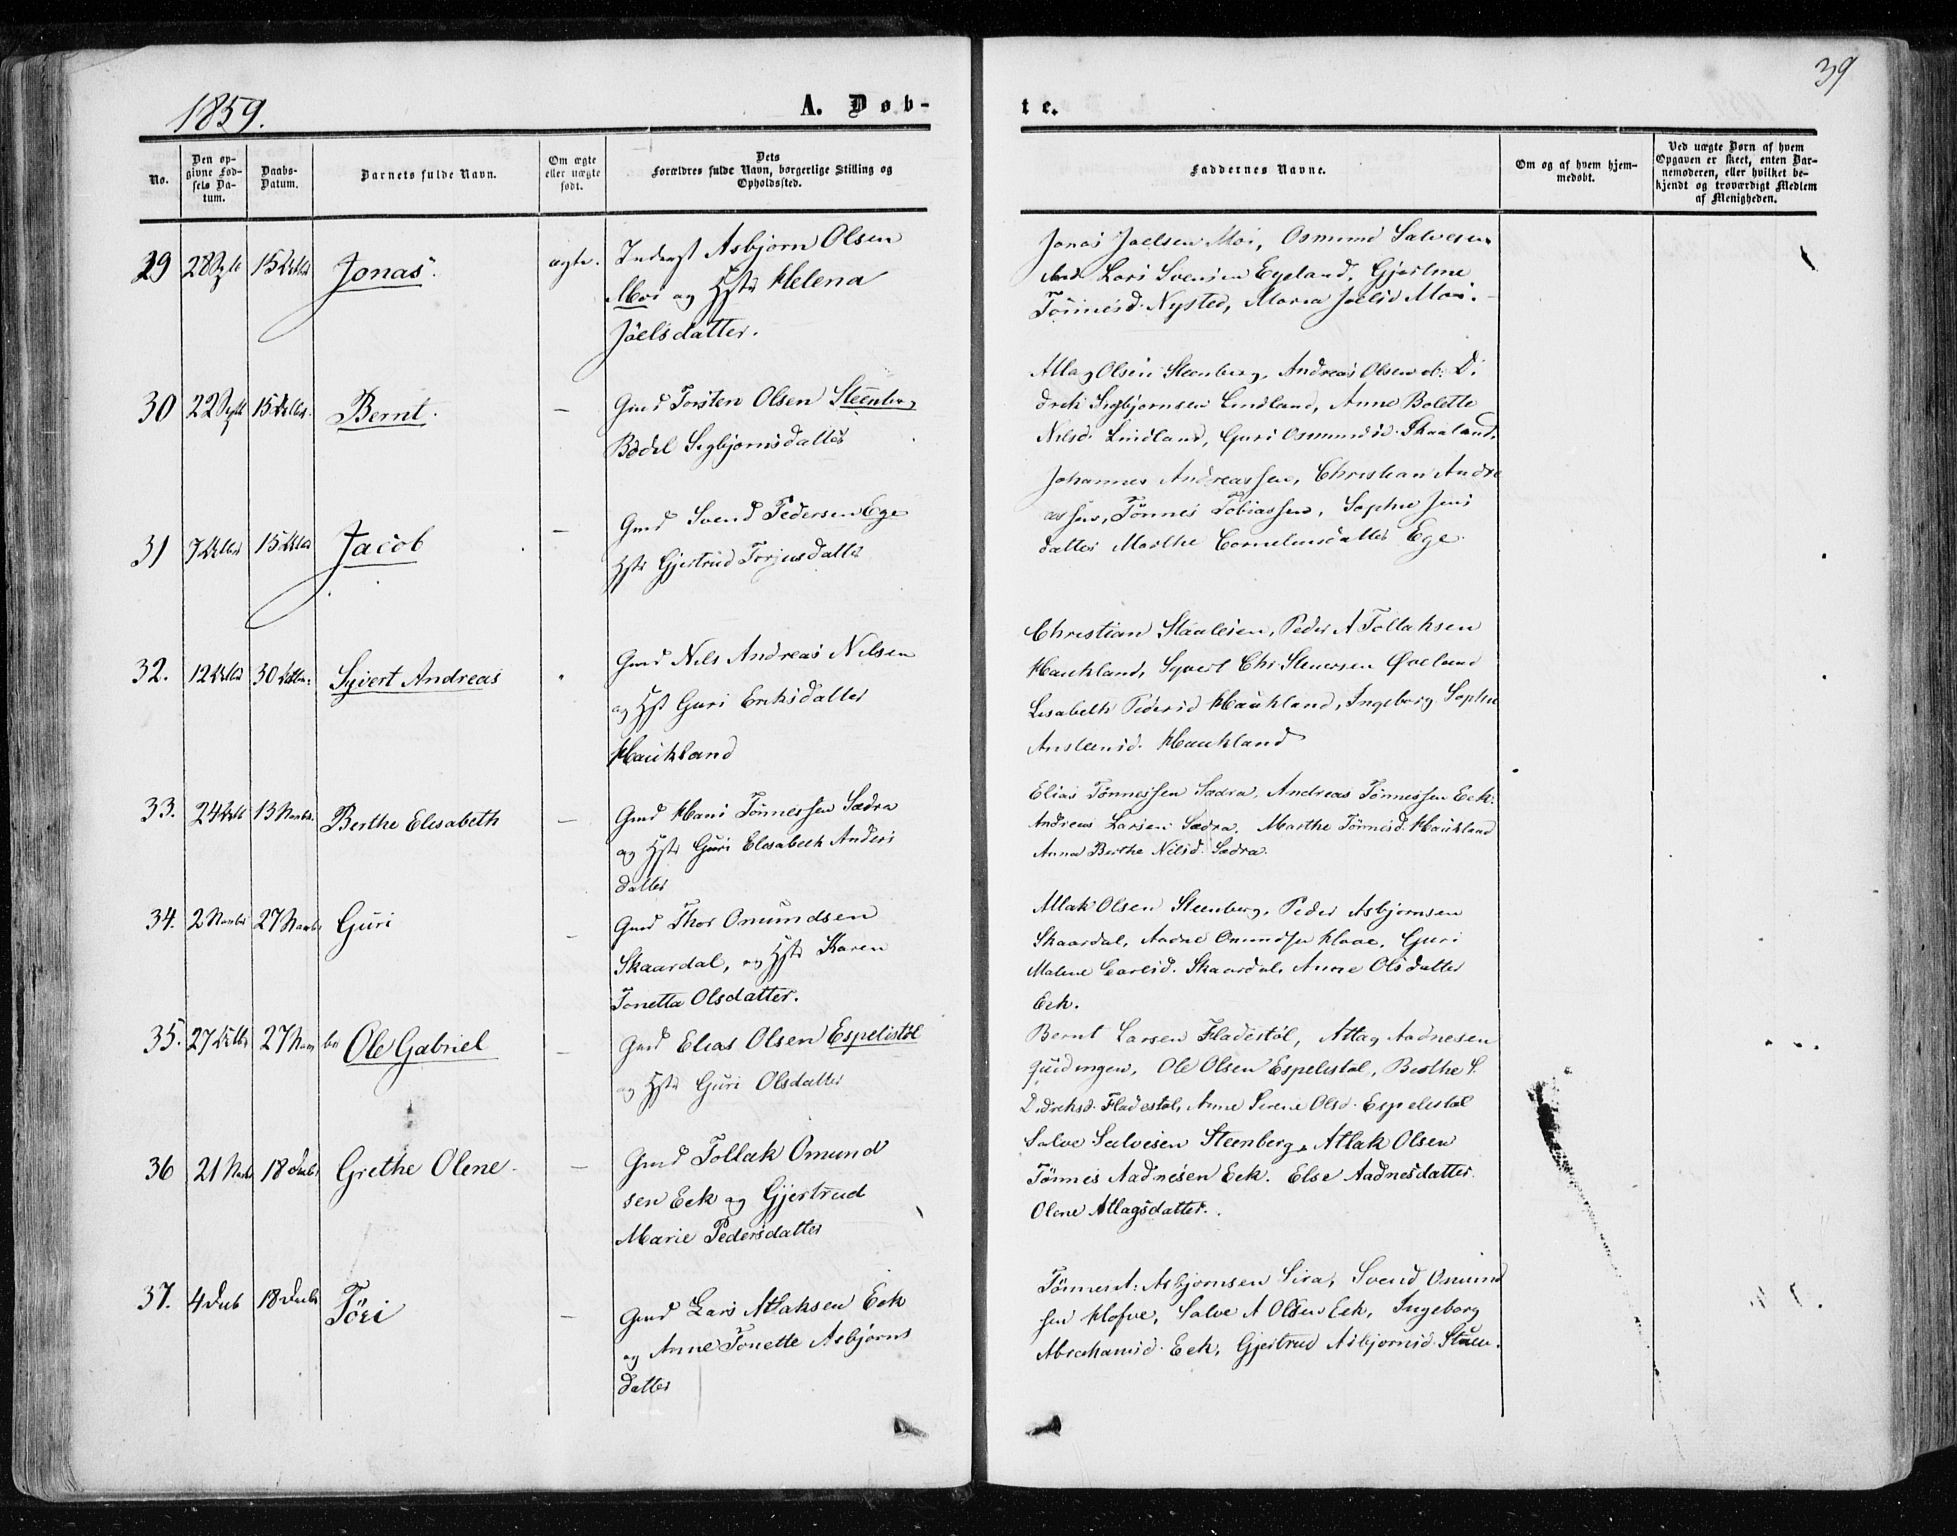 39
1859.
A. Døb-
te.
No.
Den op-
givne Fød-
sels Da-
tum.
Daabs-
Datum.
Barnets fulde Navn.
Om ægte
eller uægte
født.
Dets
Forældres fulde Navn, borgerlige Stilling og
Opholdssted.
Faddernes Navne.
Om og af hvem hjem-
medøbt.
Ved uægte Børn af hvem
Opgaven er skeet, enten Bar-
nemoderen, eller hvilket be-
kjendt og troværdigt Medlem
af Menigheden.
29 28 Sptb 15 Octbr Jonas. ægte. Inderst Asbjørn Olsen
Moi og Hstr Helena
Joelsdatter.
Jonas Joelsen Moi, Osmund Salvesen
Lars Svensen Egeland,
Tönnesd. Nysted, Maria Joelsd Moi.
30 22 Septb 15 Octbr. Bernt. — Gmd Torsten Olsen Steenberg
Bodel Sigbjørnsdatter
Atlag Olsen Steenberg, Andreas Olsen ob. D.
dreK Sigbjørnsen Lindland, Anne Bolette
Nilsd. Lindland, Guri Osmundsd. Skaaland.
31 7 Octbr 15 Octbr Jacob — Gmd Svend Pedersen Ege
Hstr Gjertrud Torjusdatter
Johannes Andreassen, Christian Andre
assen, Tönnes Tobiassen, Sophie Jens
datter Marthe Corneliusdatter Ege.
32. 12 Octbr 30 Octbr. Syvert Andreas Gmd Nils Andreas Nilsen
og Hst Guri Eriksdatter
Haukland
Christian Staalesen, Peder A Tollaksen
Haukland, Syvert Chr Steensen Øveland
Lisabeth Pedersd Haukland, Ingeborg Sophie
Ansteensd. Haukland
33. 24 Octb 13 Novbr. Berthe Elisabeth — Gmd Hans Tönnessen Sædra
og Hstr Guri Elisabeth Anders
datter
Elias Tønnessen Sædra, Andreas Tønnessen Eek.
Andreas Larsen Sædra. Marthe Tönnesd. Haukland
Anna Berthe Nilsd. Sædra.
34. 2 Novbr 27 Novbr Guri — Gmd Thor Omundsen
Skaardal, og Hstr Karen
Tonetta Olsdatter.
Atlak Olsen Steenberg, Peder Asbjørnsen
Skaardal, Aadne Omundsen Guri
Malene Carlsd. Skaardal, Anne Olsdatter
Eek.
35. 27 Octbr 27 Novbr Ole Gabriel — Gmd Elias Olsen Espelistøl
og Hstr Guri Olsdatter
Bernt Larsen Fladestøl, Atlag Aadnesen
Ole Olsen Espelistøl, Berthe S.
Didreksd. Fladestøl, Anne Serene Olsd. Espelistøl
36 21 Novbr 18 Decb Grethe Olene. — Gmd Tollak Omund
sen Eek og Gjertrud
Marie Pedersdatter
Salve Salvesen Steenberg, Atlak Olsen
Tönnes Aadnesen Eek. Else Aadnesdatter.
Olene Atlagsdatter.
37. 4 Decb 18 Decbr Töri — Gmd Lars Atlaksen Eek
og Anne Tonette Asbjørns
datter
Tönnes A. Asbjørnsen Sira, Svend Omund
sen Salve A Olsen Eek, Ingeborg
Abrahamsd. Eek, Gjertrud Asbjørnsd.